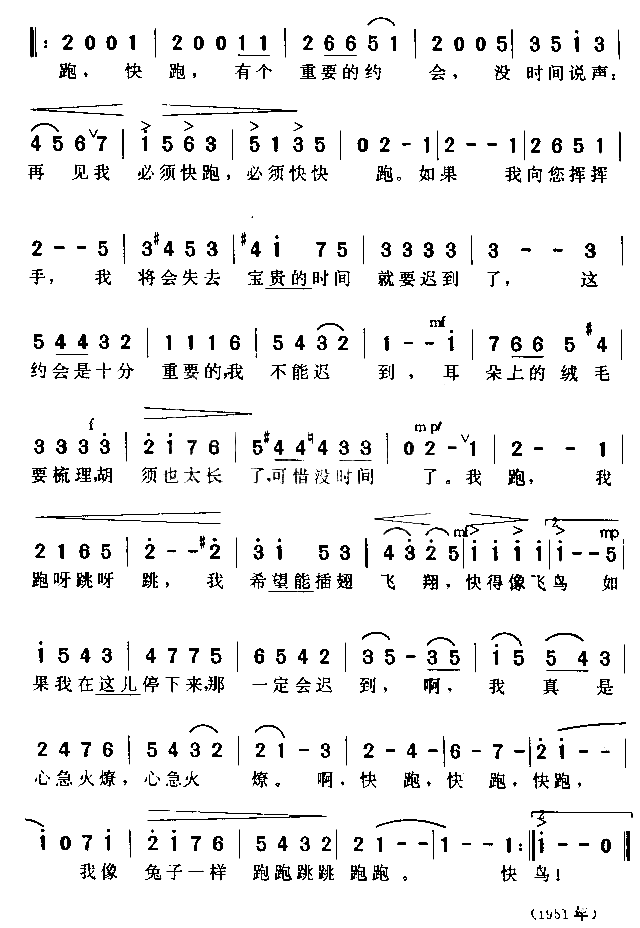 2 0 0 0 1 | 2 0 0 0 1 1 | 2 6 6 5 1 | 2 0 0 5 | 3 5 i 3
跑，快跑，有个重要的约会，没时间说声：
4 5 6 7 | i 5 6 3 | 5 1 3 5 | 0 2 - 1 | 2 - - 1 | 2 6 5 1
再见我必须快跑，必须快快跑。如果我向您挥挥
2 - - 5 | 3 #4 5 3 | #4 i 7 5 | 3 3 3 3 | 3 - - 3
手，我将会失去宝贵的时间就要迟到了，这
mf
5 4 4 3 2 | 1 1 1 6 | 5 4 3 2 | 1 - - i | 7 6 6 5 #4
约会是十分重要的，我不能迟到，耳朵上的绒毛
f mp
3 3 3 3 | 2 i 7 6 | 5 #4 4 ♮4 3 3 | 0 2 - 1 | 2 - - 1
要梳理，胡须也太长了，可惜没时间了。我跑，我
mf 2. mp
2 1 6 5 | 2 - - #2 | 3 i 5 3 | 4 3 2 5 | i i i i | i - - 5
跑呀跳呀跳，我希望能插翅飞翔，快得像飞鸟如
i 5 4 3 | 4 7 7 5 | 6 5 4 2 | 3 5 - 3 5 | i 5 5 4 3
果我在这儿停下来，那一定会迟到，啊，我真是
2 4 7 6 | 5 4 3 2 | 2 1 - 3 | 2 - 4 - | 6 - 7 - | 2 i - -
心急火燎，心急火燎。啊，快跑，快跑，快跑，
i 0 7 i | 2 i 7 6 | 5 4 3 2 | 2 - - - | 1 - - 1 :‖ i - - 0 ‖
我像兔子一样跑跑跳跳跑跑。快鸟！
(1951年)